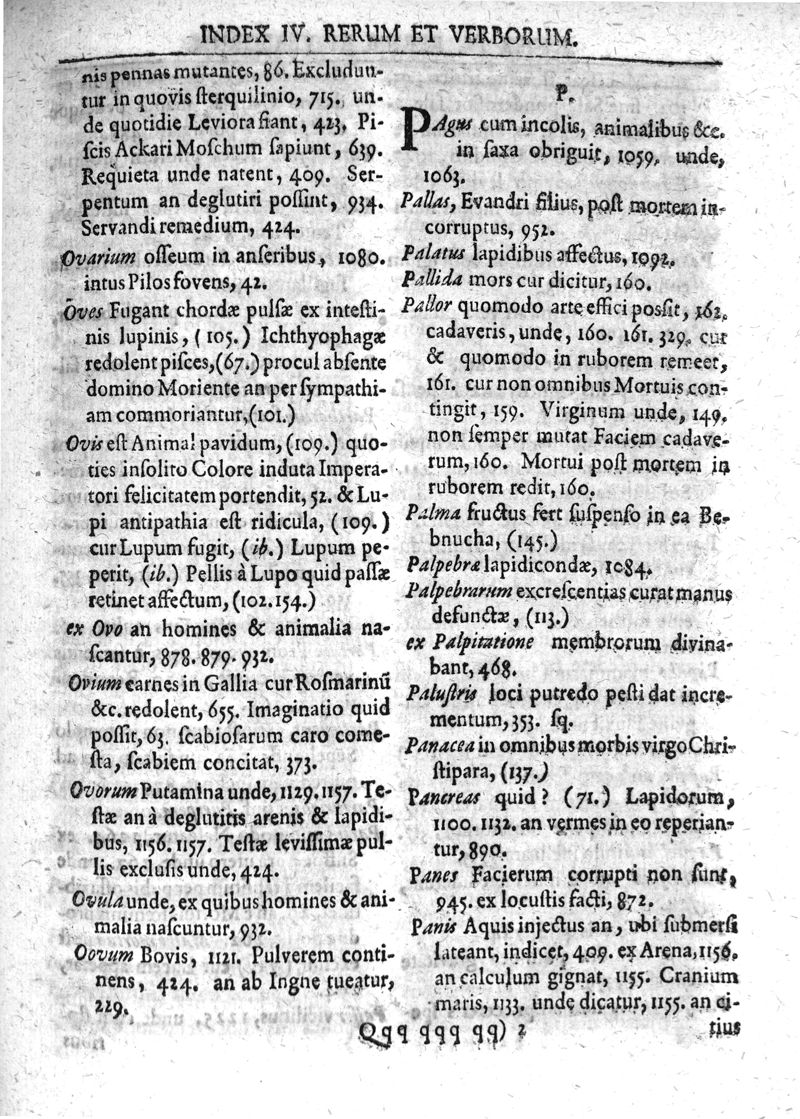 INDEX IV. RERUM ET VERBORUM.
nis pennas mutantes, 86. Excludun-
tur in quovis ſterquilinio, 715. un-
de quotidie Leviora fiant, 423. Pi-
ſcis Ackari Moſchum ſapiunt, 639.
Requieta unde natent, 409. Ser-
pentum an deglutiri poſſint, 934.
Servandi remedium, 424.
Ovarium oſſeum in anſeribus, 1080.
intus Pilos fovens, 42.
Oves Fugant chordæ pulſæ ex inteſti-
nis lupinis, (105.) Ichthyophagæ
redolent piſces, (67.) procul abſente
domino Moriente an per ſympathi-
am commoriantur, (101.)
Ovis eſt Animal pavidum, (109.) quo-
ties inſolito Colore induta Impera-
tori felicitatem portendit, 52. & Lu-
pi antipathia eſt ridicula, (109.)
cur Lupum fugit, (ib.) Lupum pe-
perit, (ib.) Pellis à Lupo quid paſſæ
retinet affectum, (102.154.)
ex Ovo an homines & animalia na-
ſcantur, 878. 879. 932.
Ovium carnes in Gallia cur Roſmarinũ
&c. redolent, 655. Imaginatio quid
poſſit, 63. ſcabioſarum caro come-
ſta, ſcabiem concitat, 373.
Ovorum Putamina unde, 1129. 1157. Te-
ſtæ an à deglutitis arenis & lapidi-
bus, 1156. 1157. Teſtæ leviſſimæ pul-
lis excluſis unde, 424.
Ovula unde, ex quibus homines & ani-
malia naſcuntur, 932.
Oovum Bovis, 1121. Pulverem conti-
nens, 424. an ab Ingne tueatur,
229.
P.
PAgus cum incolis, animalibus &c.
in ſaxa obriguit, 1059. unde,
1063.
Pallas, Evandri filius, poſt mortem in-
corruptus, 952.
Palatus lapidibus affectus, 1092.
Pallida mors cur dicitur, 160.
Pallor quomodo arte effici poſſit, 162.
cadaveris, unde, 160. 161. 329. cur
& quomodo in ruborem remeet,
161. cur non omnibus Mortuis con-
tingit, 159. Virginum unde, 149.
non ſemper mutat Faciem cadave-
rum, 160. Mortui poſt mortem in
ruborem redit, 160.
Palma fructus fert ſuſpenſo in ea Be-
bnucha, (145.)
Palpebra lapidicondæ, 1084.
Palpebrarum excreſcentias curat manus
defunctæ, (113.)
ex Palpitatione membrorum divina-
bant, 468.
Paluſtris loci putredo peſti dat incre-
mentum, 353. ſq.
Panacea in omnibus morbis virgo Chri-
ſtipara, (137.)
Pancreas quid? (71.) Lapidorum,
1100. 1132. an vermes in eo reperian-
tur, 890.
Panes Facierum corrupti non ſunt,
945. ex locuſtis facti, 872.
Panis Aquis injectus an, ubi ſubmerſi
lateant, indicet, 409. ex Arena, 1156.
an calculum gignat, 1155. Cranium
maris, 1133. unde dicatur, 1155. an ci-
Qqq qqq qq) 2
tius